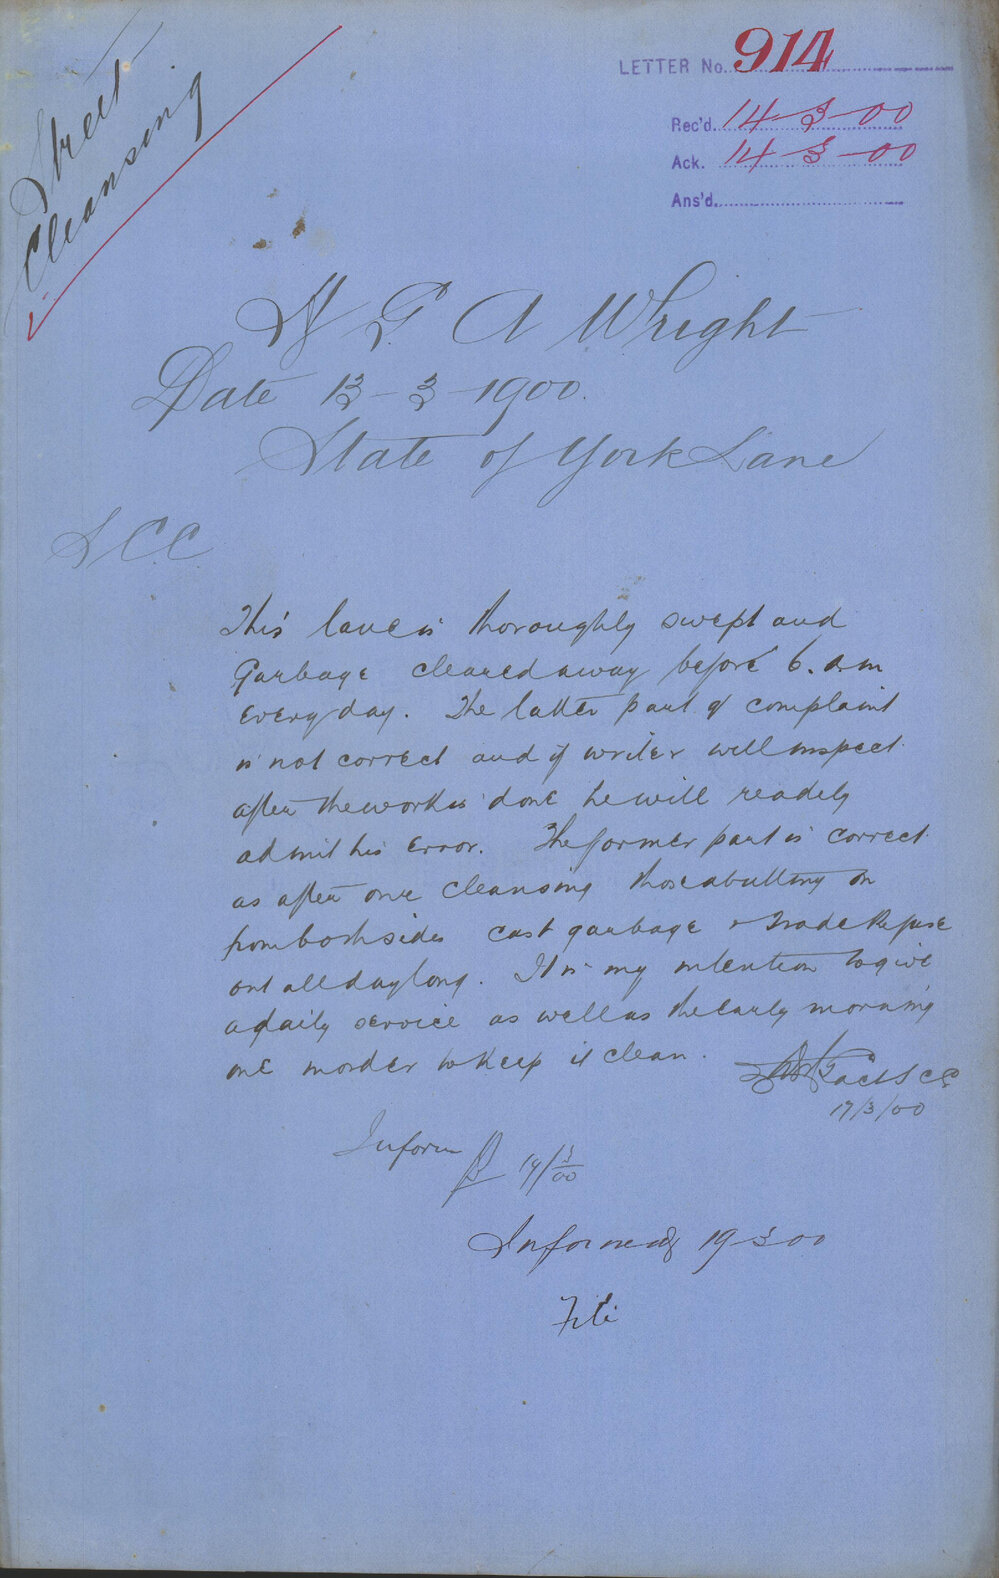 Street
Cleansing
LETTER No. 914
Rec'd. 14-3-00
Ack. 14-3-00
Ans'd.
G A Wright
Date 13-3-1900.
State of York Lane
S C C
This lane is thoroughly swept and
Garbage cleared away before 6. a.m
every day. The latter part of complaint
is not correct and if writer will inspect
after the work is done he will readily
admit his error. The former part is correct
as after once cleansing those abutting on
from both sides cast garbage & Trade Refuse
out all day long. It is my intention to give
a daily service as well as the early morning
one in order to keep it clean.
S C C
17/3/00
Inform
19/3/00
Informed 19 3 00
File